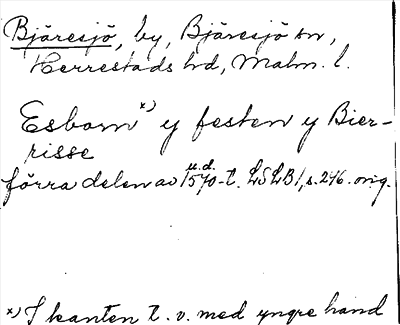 Bjäresjö, by, Bjäresjö sn,
Herrestads hd, Malm. l.
Esbom x) y festen y Bier-
risse
förra delen av 1570-t. u.d. LSLB 1, s. 246. orig.
x) I kanten t. v. med yngre hand